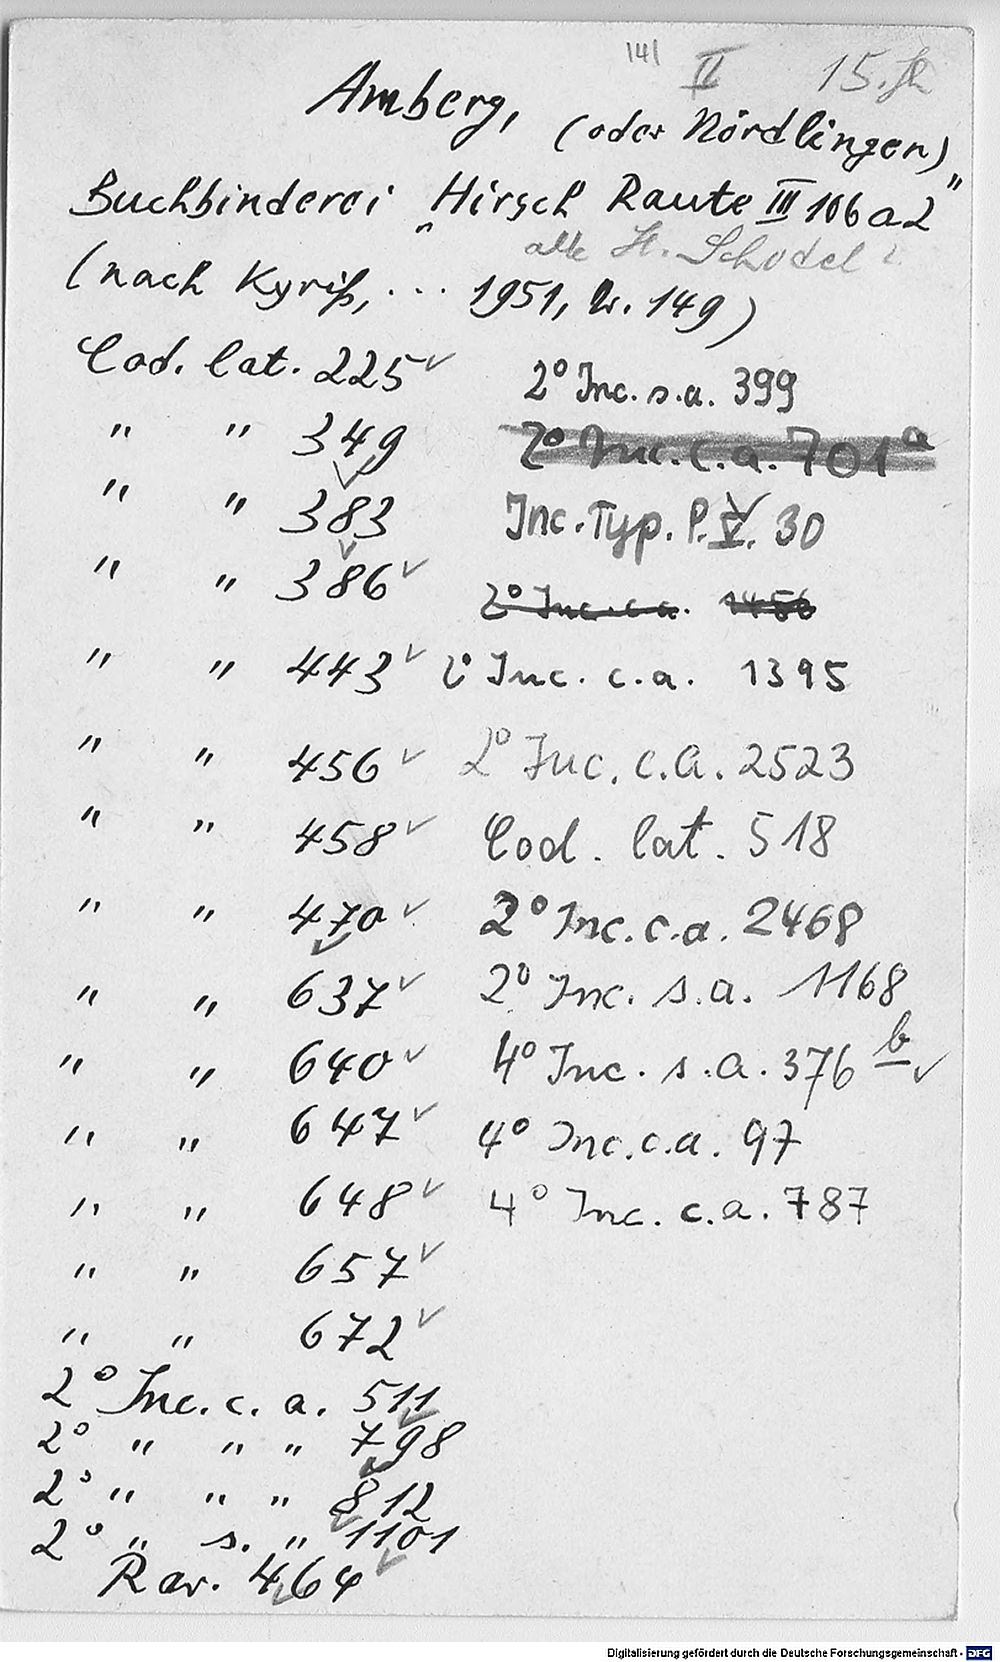 141 II 15. Jh
Amberg, (oder Nördlingen)
Buchbinderei „Hirsch Raute III 106 a 2"
alle H. Schodel ?
(nach Kyriß, ... 1951, Nr. 149)
Cod. lat. 225 ✓
" " 349
" " 383
" " 386 ✓
" " 443 ✓
" " 456 ✓
" " 458 ✓
" " 470 ✓
" " 637 ✓
" " 640 ✓
" " 647 ✓
" " 648 ✓
" " 657 ✓
" " 672 ✓
2° Inc. c. a. 511
2° " " " 798
2° " " " 812
2° " s. " 1101
Rar. 464
2° Inc. s.a. 399
2° Inc. c.a. 701a
Inc. Typ. P. V. 30
2° Inc. c.a. 1456
2° Inc. c.a. 1395
2° Inc. c.a. 2523
Cod. lat. 518
2° Inc. c.a. 2468
2° Inc. s.a. 1168
4° Inc. s.a. 376 b ✓
4° Inc. c.a. 97
4° Inc. c.a. 787
Digitalisierung gefördert durch die Deutsche Forschungsgemeinschaft - DFG